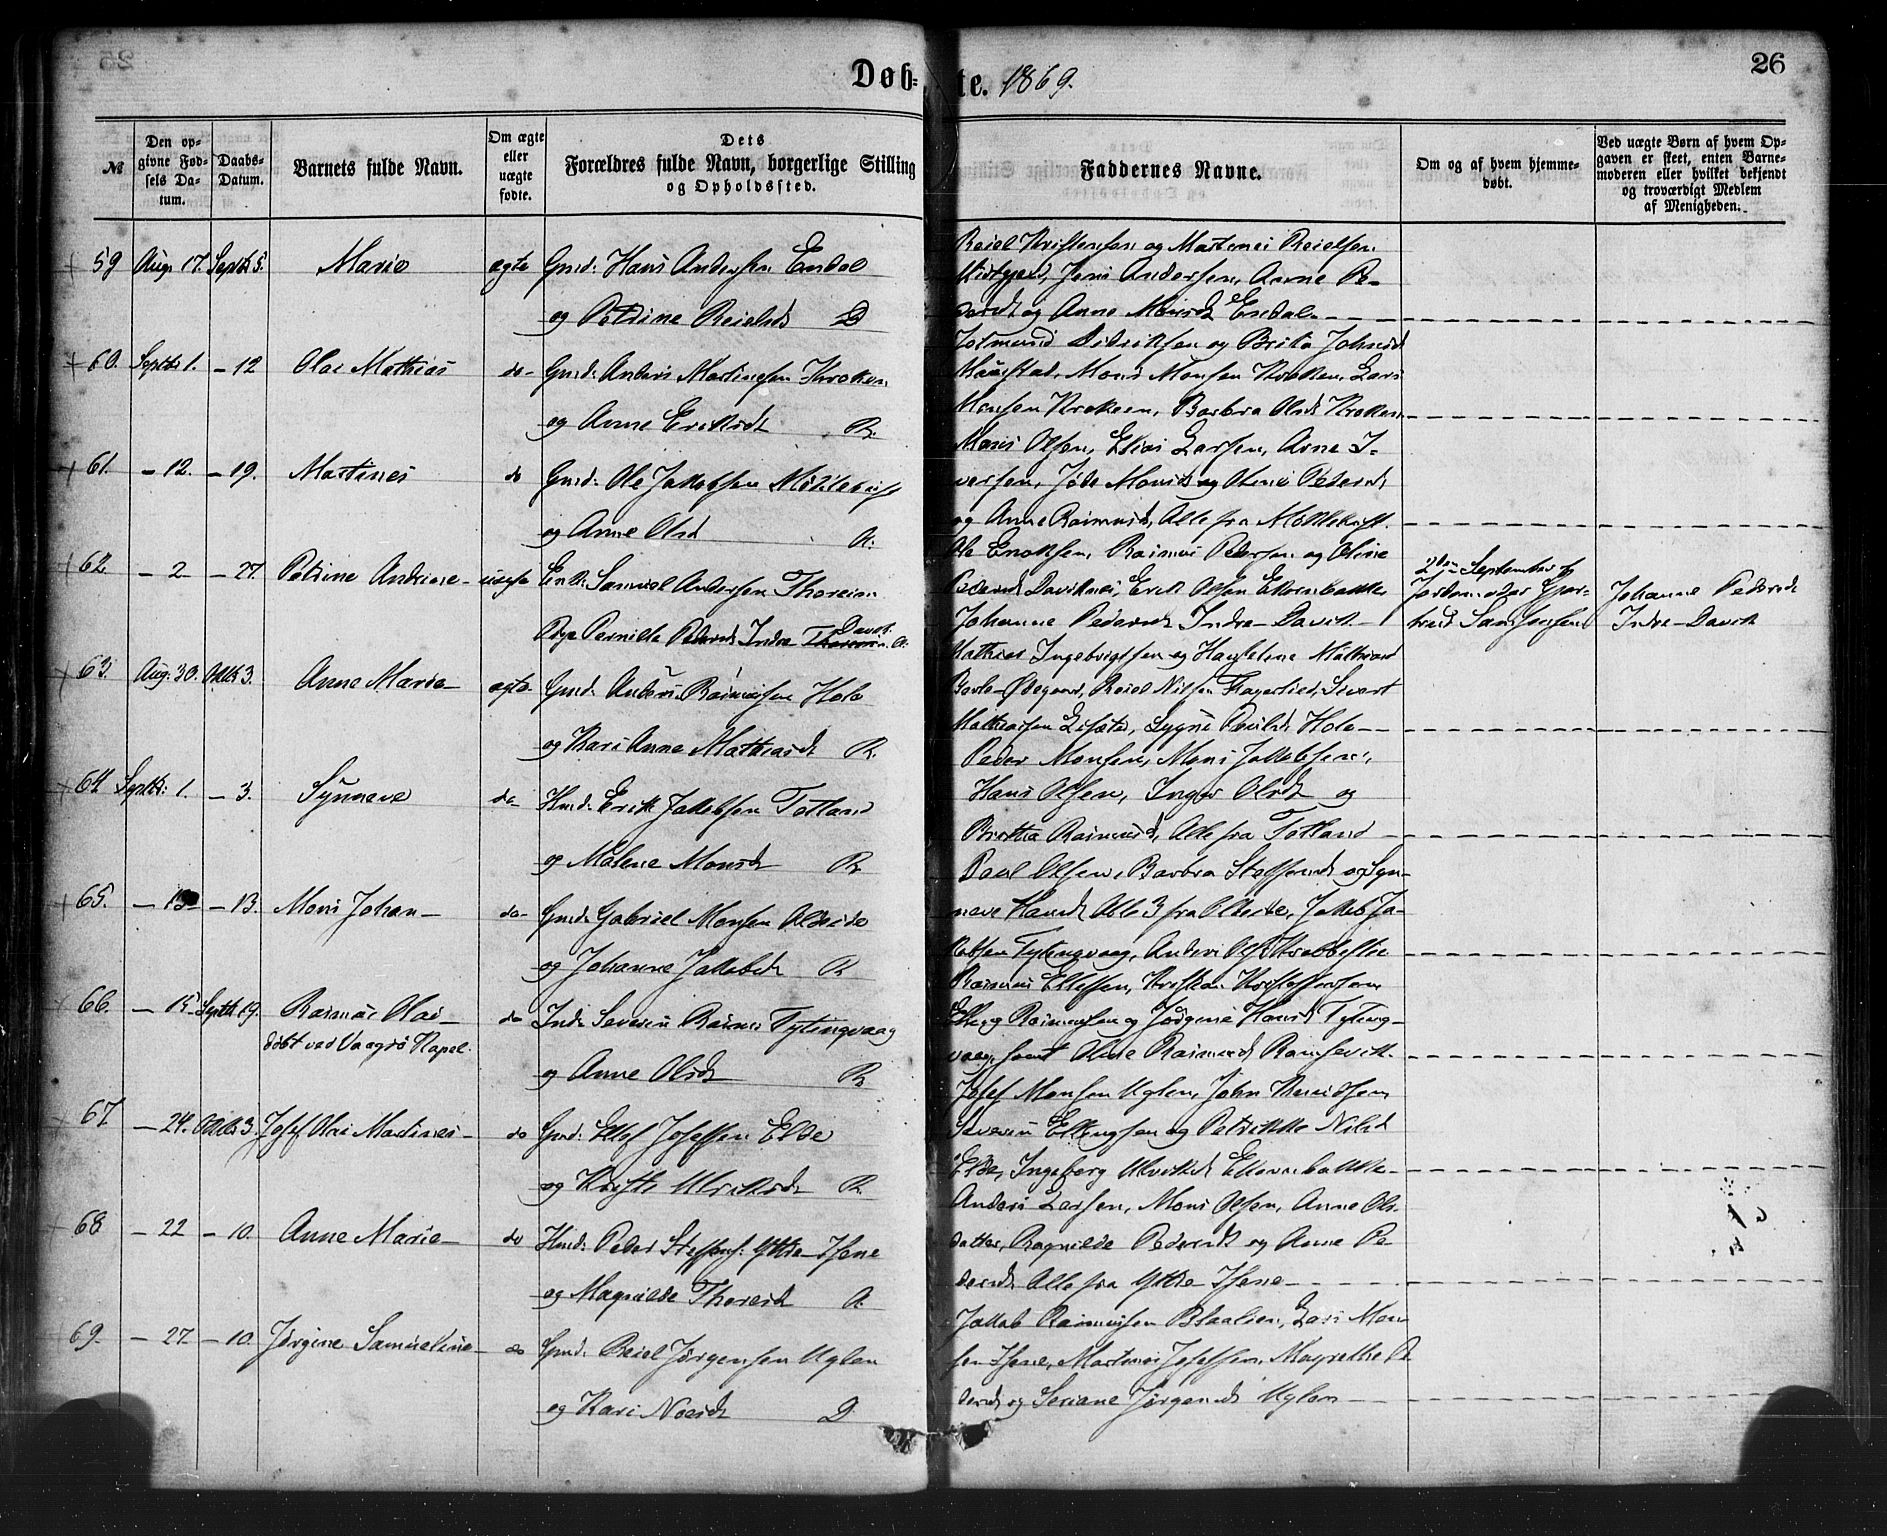 Døb-
te. 1869.
26
№
Den op-
givne Fød-
sels Da-
tum.
Daabs-
Datum.
Barnets fulde Navn.
Om ægte
eller
uægte
fødte.
Dets
Forældres fulde Navn, borgerlige Stilling
og Opholdssted.
Faddernes Navne.
Om og af hvem hjemme-
døbt.
Ved uægte Børn af hvem Op-
gaven er skeet, enten Barne-
moderen eller hvilket bekjendt
og troværdigt Medlem
af Menigheden.
59 Aug. 17. Septb 5. Marie ægte Gmd. Hans Andersen Endal
og Petrine Reielsd D
Reiel Kristensen og Martinus Reielsen
Jens Andersen, Anne Pe-
dersdt og Anne Monsdt Endal
60. Septb 1. - 12 Olai Mathias do- Gmd. Anders Martinusen Kroken
og Anne Eriksdt R.
Didriksen og Brita Johnsd
Maurstad, Mons Monsen Kroken, Lars
Monsen Kroken, Barbra Olsdt Kroken
61. - 12. - 19. Martines do Gmd. Ole Jakobsen Myklebust
og Anne Olsd A.
Mons Olsen, Elias Larsen, Arne I-
versen, Monsdt og Pedersdt
og Anne Rasmusd, Alle fra Myklebust.
62 - 2 - 27. Petrine Andrine uægte Enkem. Samuel Andersen
Pige Pernille Pedersdt Indre Davik. A.
Ole Enoksen, Rasmus Pedersen og Oline
Pedersdt Daviknes, Erik Olsen Ellevebakke
Johanne Pedersdt Indre Davik
2den September af
Jordemoder
Johanne Pedersdt
Indre Davik
63. Aug. 30. Oktb 3. Anne Marie ægte Gmd. Anders Rasmussen Hole
og Kari Anne Mathiasdt R.
Mathias Ingebrigtsen og
Ødegaard, Reiel Nilsen Fagerlied, Sivert
Mathiassen Hole
64 Septb. 1. - 3. Synneve do Hmd. Erik Jakobsen Totland
og Malene Monsdt R
Peder Monsen, Mons Jakobsen,
Hans Olsen, Inger Olsdt og
Britha Rasmusd, Alle fra Totland
65. - 13 - 13. Mons Johan do- Gmd. Gabriel Monsen Oldeide
og Johanne Jakobsdt R
Paul Olsen, Barbra Steffensdt og Syn-
neve Hansdt Alle 3 fra Oldeide, Jakob Ja-
kobsen Tytingvaag, Anders Olsen
66. - 15 Septb 19. Rasmus Olai
døbt ved Vaagsø Kapel. do Inds. Severin Rasmus Tytingvaag
og Anne Olsdt R
Rasmus Ellefsen, Kristen Kristoffersen
Rasmussen og Jørgine Hansd Tyting-
vaag, samt Oline Rasmusdt
67. - 24. Oktb 3. Josef Olai Martines do Gmd. Ellef Josefsen Elde
og Kristi Ulriksdt R.
Josef Monsen Uglen, John Knudsen,
Severin Ellingsen og Petrikke Nilsd
Elde, Ingeborg Ulriksdt Ellevebakke
68 - 22 - 10. Anne Marie do Hmd. Peder Steffens. Ytre Isene
og Magnilde Thoresdt A.
Anders Larsen, Mons Olsen, Anne Ols-
datter, Ragnilde Pedersdt og Anne Pe-
dersdt Alle fra Ytre Isene
69. - 27. - 10. Jørgine Samueline do Gmd. Reiel Jørgensen Uglen
og Kari Noesdt D
Jakob Rasmussen Blaalien, Lars Mon-
sen Isene, Martinus Josefsen, Magrethe Pe-
dersdt og Seriane Jørgensdt Uglen